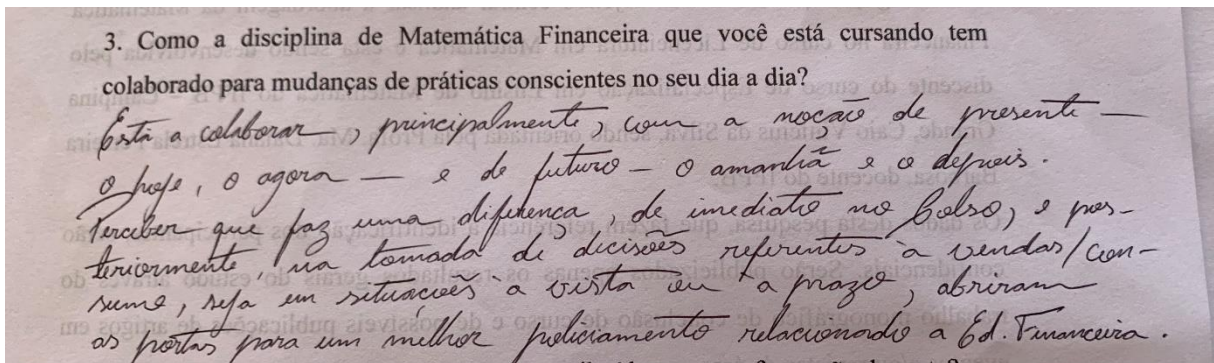 3. Como a disciplina de Matemática Financeira que você está cursando tem
colaborado para mudanças de práticas conscientes no seu dia a dia?
Está a colaborar, principalmente, com a noção de presente —
o hoje, o agora — e de futuro — o amanhã e o depois.
Perceber que faz uma diferença, de imediato no bolso, e pos-
teriormente, na tomada de decisões referentes à vendas/con-
sumo, seja em situações à vista ou à prazo, abriram
as portas para um melhor policiamento relacionado a Ed. Financeira.